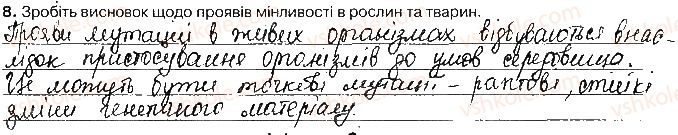 8. Зробіть висновок щодо проявів мінливості в рослин та тварин.
Прояви мутацій в живих організмах відбуваються внас-
лідок пристосування організмів до умов середовища.
Це можуть бути точкові мутації – раптові, стійкі
зміни генетичного матеріалу.